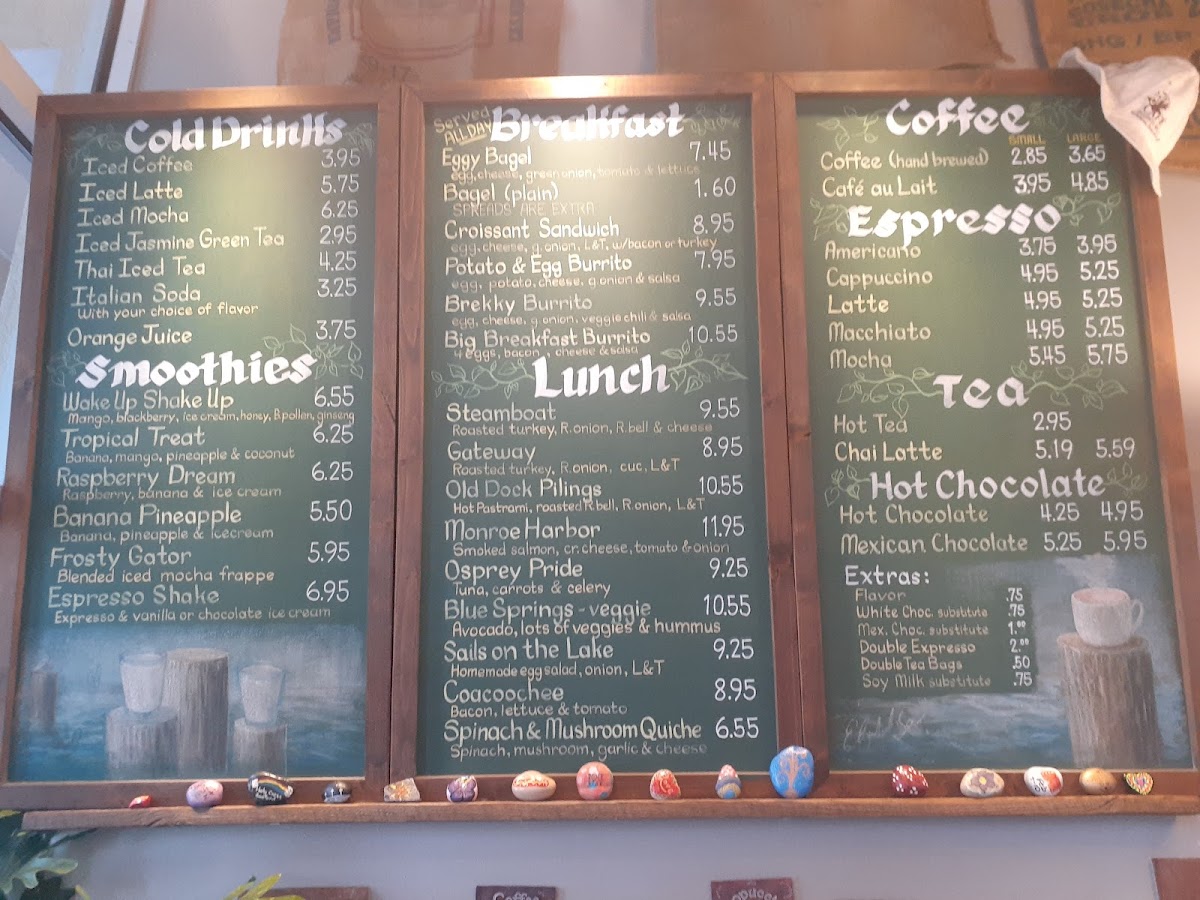 Cold Drinks
Iced Coffee 3.95
Iced Latte 5.75
Iced Mocha 6.25
Iced Jasmine Green Tea 2.95
Thai Iced Tea 4.25
Italian Soda 3.25
With your choice of flavor
Orange Juice 3.75
Smoothies
Wake Up Shake Up 6.55
Mango, blackberry, ice cream, honey, B.pollen, ginseng
Tropical Treat 6.25
Banana, mango, pineapple & coconut
Raspberry Dream 6.25
Raspberry, banana & ice cream
Banana Pineapple 5.50
Banana, pineapple & Icecream
Frosty Gator 5.95
Blended iced mocha frappe
Espresso Shake 6.95
Expresso & vanilla or chocolate ice cream
Served
ALL DAY
Breakfast
Eggy Bagel 7.45
egg, cheese, green onion, tomato & lettuce
Bagel (plain) 1.60
SPREADS ARE EXTRA
Croissant Sandwich 8.95
egg, cheese, g.onion, L&T, w/bacon or turkey
Potato & Egg Burrito 7.95
egg, potato, cheese, g.onion & salsa
Brekky Burrito 9.55
egg, cheese, g.onion, veggie chili & salsa
Big Breakfast Burrito 10.55
4 eggs, bacon, cheese & salsa
Lunch
Steamboat 9.55
Roasted turkey, R.onion, R.bell & cheese
Gateway 8.95
Roasted turkey, R.onion, cuc, L&T
Old Dock Pilings 10.55
Hot Pastrami, roasted R.bell, R.onion, L&T
Monroe Harbor 11.95
Smoked salmon, cr.cheese, tomato & onion
Osprey Pride 9.25
Tuna, carrots & celery
Blue Springs - veggie 10.55
Avocado, lots of veggies & hummus
Sails on the Lake 9.25
Homemade egg salad, onion, L&T
Coacoochee 8.95
Bacon, lettuce & tomato
Spinach & Mushroom Quiche 6.55
Spinach, mushroom, garlic & cheese
Coffee
SMALL LARGE
Coffee (hand brewed) 2.85 3.65
Café au Lait 3.95 4.85
Espresso
Americano 3.75 3.95
Cappuccino 4.95 5.25
Latte 4.95 5.25
Macchiato 4.95 5.25
Mocha 5.45 5.75
Tea
Hot Tea 2.95
Chai Latte 5.19 5.59
Hot Chocolate
Hot Chocolate 4.25 4.95
Mexican Chocolate 5.25 5.95
Extras:
Flavor .75
White Choc. substitute .75
Mex. Choc. substitute 1.00
Double Expresso 2.00
Double Tea Bags .50
Soy Milk substitute .75
Coffee